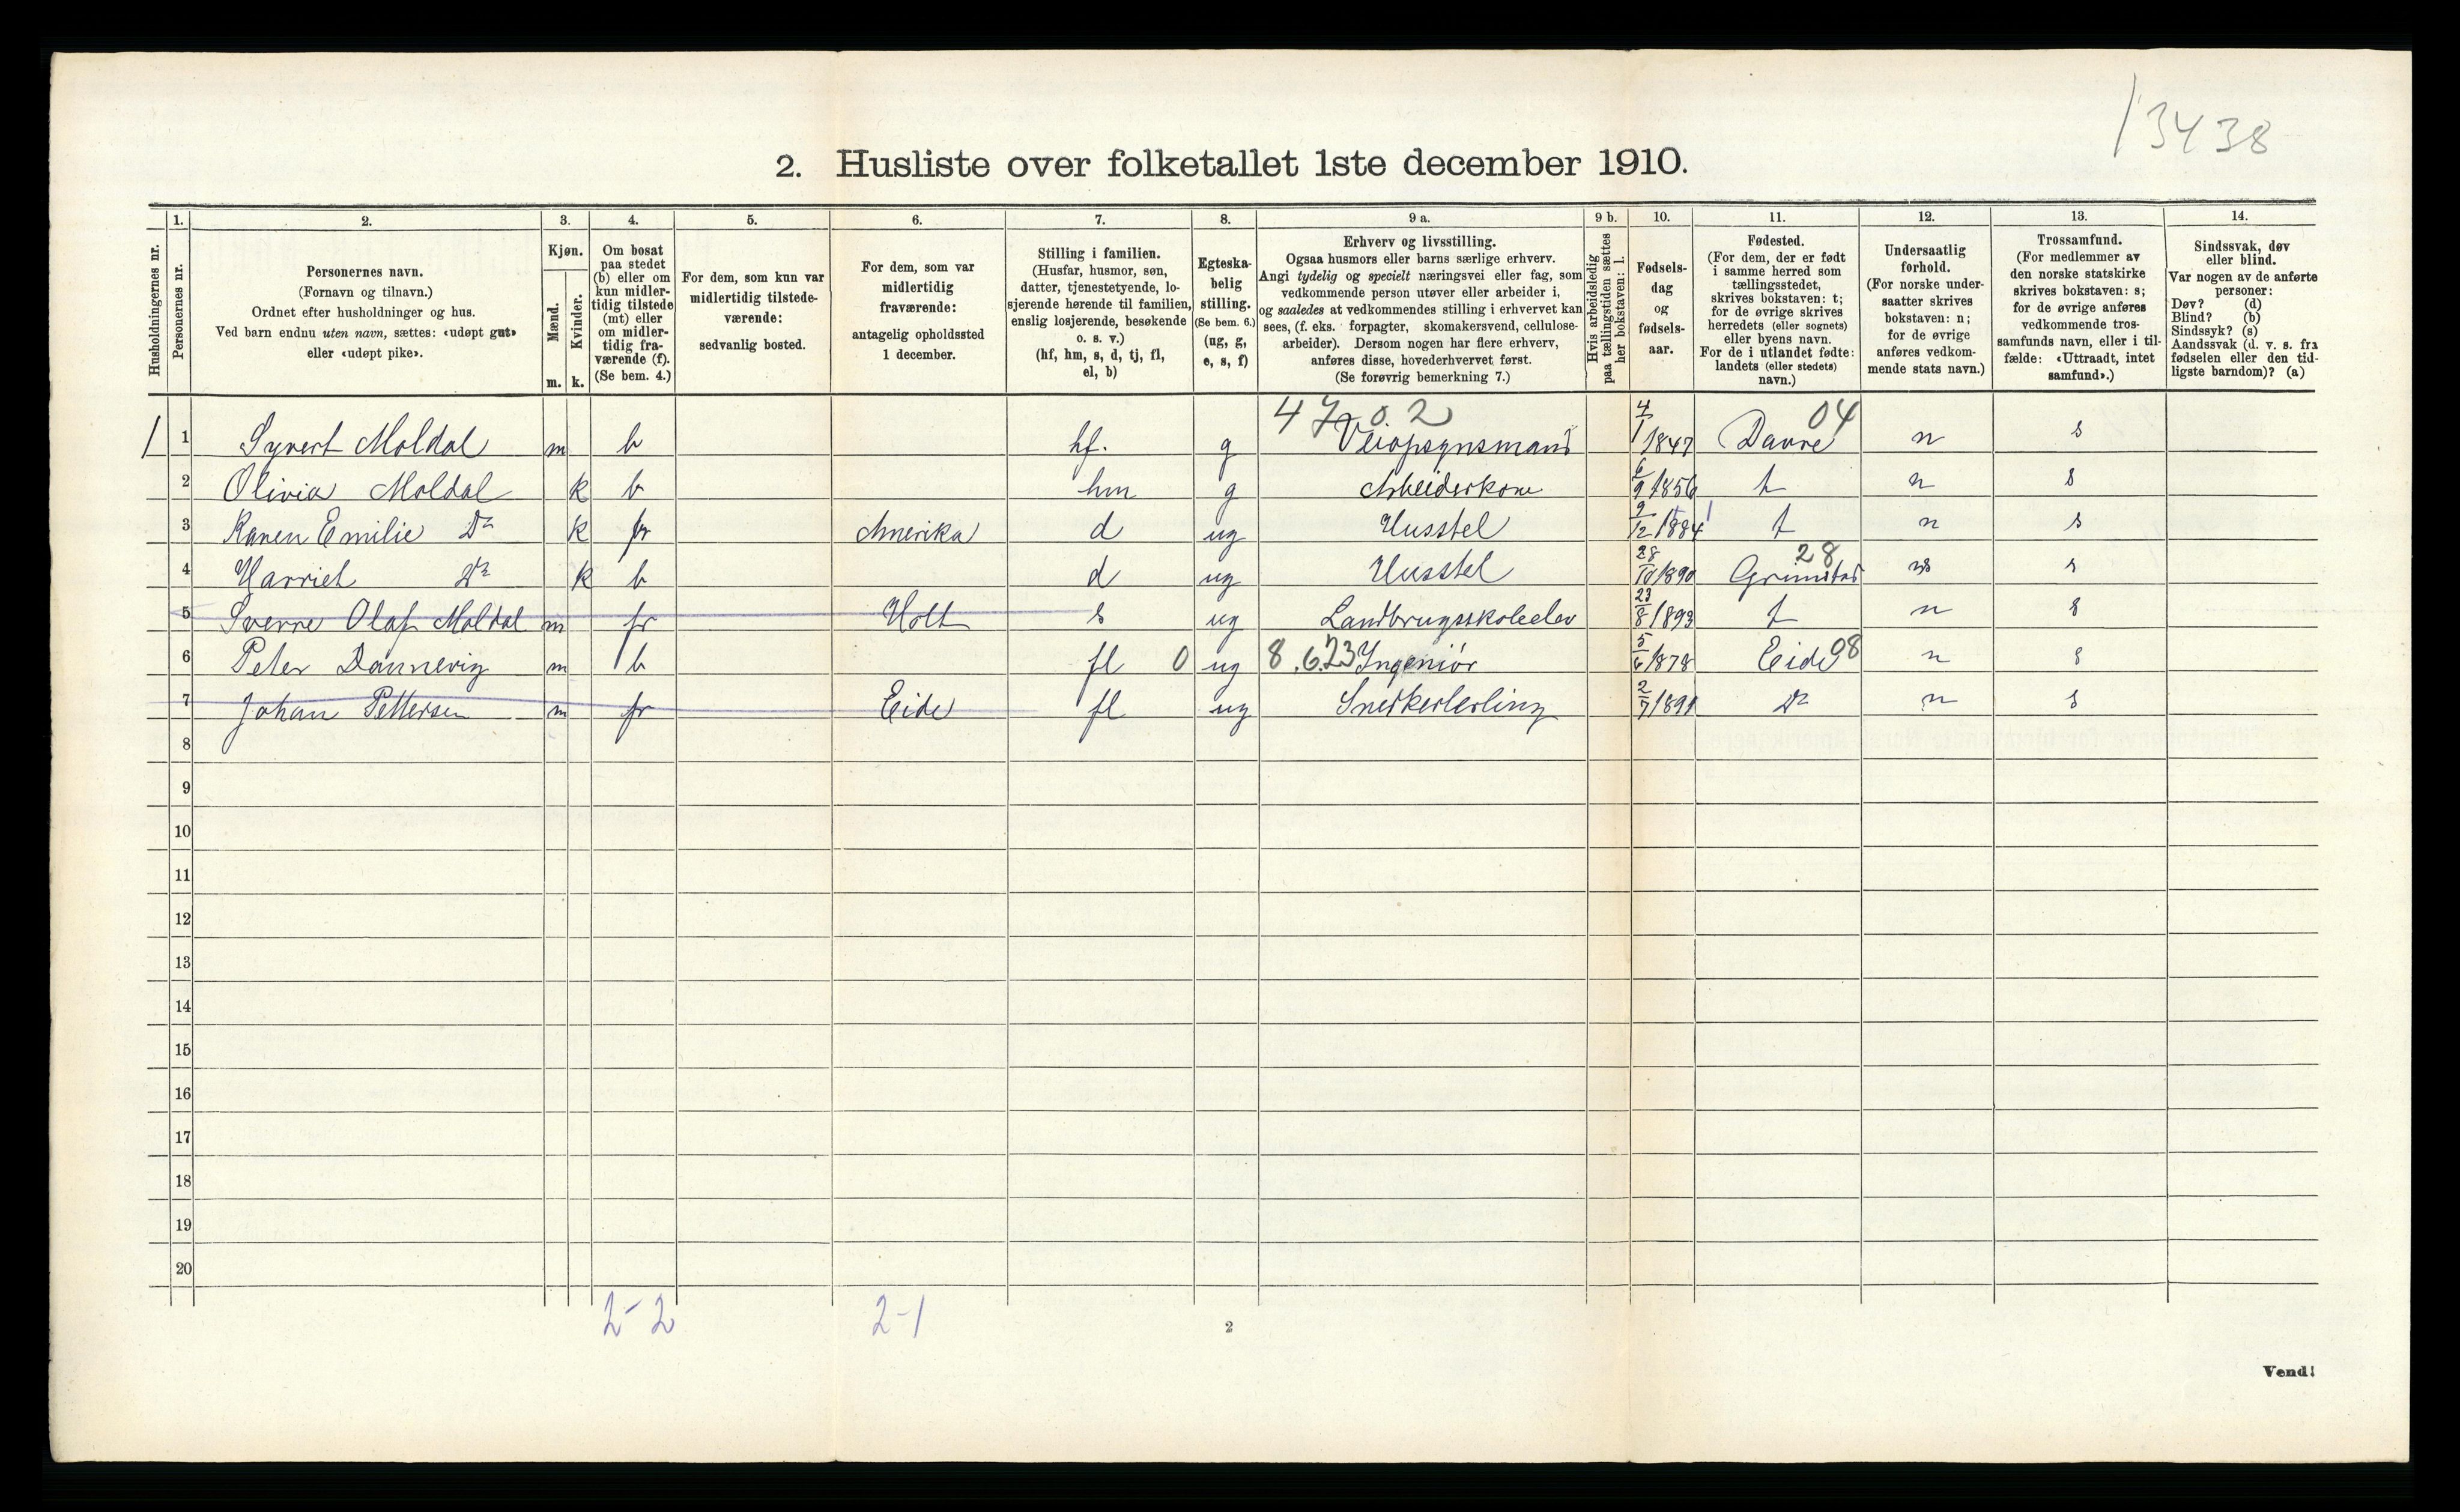 13438
2. Husliste over folketallet 1ste december 1910.
Husholdningernes nr.
1.
Personernes nr.
2.
Personernes navn.
(Fornavn og tilnavn.)
Ordnet efter husholdninger og hus.
Ved barn endnu uten navn, sættes: «udøpt gut»
eller «udøpt pike».
3.
Kjøn.
Mænd.
Kvinder.
m. k.
4.
Om bosat
paa stedet
(b) eller om
kun midler-
tidig tilstede
(mt) eller
om midler-
tidig fra-
værende (f).
(Se bem. 4.)
5.
For dem, som kun var
midlertidig tilstede-
værende:
sedvanlig bosted.
6.
For dem, som var
midlertidig
fraværende:
antagelig opholdssted
1 december.
7.
Stilling i familien.
(Husfar, husmor, søn,
datter, tjenestetyende, lo-
sjerende hørende til familien,
enslig losjerende, besøkende
o. s. v.)
(hf, hm, s, d, tj, fl,
el, b)
8.
Egteska-
belig
stilling.
(Se bem. 6.)
(ug, g,
e, s, f)
9 a.
Erhverv og livsstilling.
Ogsaa husmors eller barns særlige erhverv.
Angi tydelig og specielt næringsvei eller fag, som
vedkommende person utøver eller arbeider i,
og saaledes at vedkommendes stilling i erhvervet kan
sees, (f. eks. forpagter, skomakersvend, cellulose-
arbeider). Dersom nogen har flere erhverv,
anføres disse, hovederhvervet først.
(Se forøvrig bemerkning 7.)
9 b.
Hvis arbeidsledig
paa tællingstiden sættes
her bokstaven: l.
10.
Fødsels-
dag
og
fødsels-
aar.
11.
Fødested.
(For dem, der er født
i samme herred som
tællingsstedet,
skrives bokstaven: t;
for de øvrige skrives
herredets (eller sognets)
eller byens navn.
For de i utlandet fødte:
landets (eller stedets)
navn.)
12.
Undersaatlig
forhold.
(For norske under-
saatter skrives
bokstaven: n;
for de øvrige
anføres vedkom-
mende stats navn.)
13.
Trossamfund.
(For medlemmer av
den norske statskirke
skrives bokstaven: s;
for de øvrige anføres
vedkommende tros-
samfunds navn, eller i til-
fælde: «Uttraadt, intet
samfund».)
14.
Sindssvak, døv
eller blind.
Var nogen av de anførte
personer:
Døv? (d)
Blind? (b)
Sindssyk? (s)
Aandssvak (d. v. s. fra
fødselen eller den tid-
ligste barndom)? (a)
47 0 2 04
1 1 Syvert Moldal m b hf. g Veiopsynsmand 4/1 1847 Davre n s
2 Olivia Moldal k b hm g Arbeiderkone 6/9 1856 t n s
3 Karen Emilie Do k fr Amerika d ug Husstel 9/12 1884 t n s
4 Harriet Do k b d ug Husstel 28/10 1890 Grimstad 28 n s
5 Sverre Olaf Moldal m fr Holt s ug Landbrugsskoleelev 23/8 1893 t n s
6 Peter Dannevig m b fl 0 ug 8.6.23 Ingeniør 5/6 1878 Eide 08 n s
7 Johan Pettersen m fr Eide fl ug Snedkerlerling 2/7 1891 Do n s
8
9
10
11
12
13
14
15
16
17
18
19
20
2-2 2-1
2
Vend!